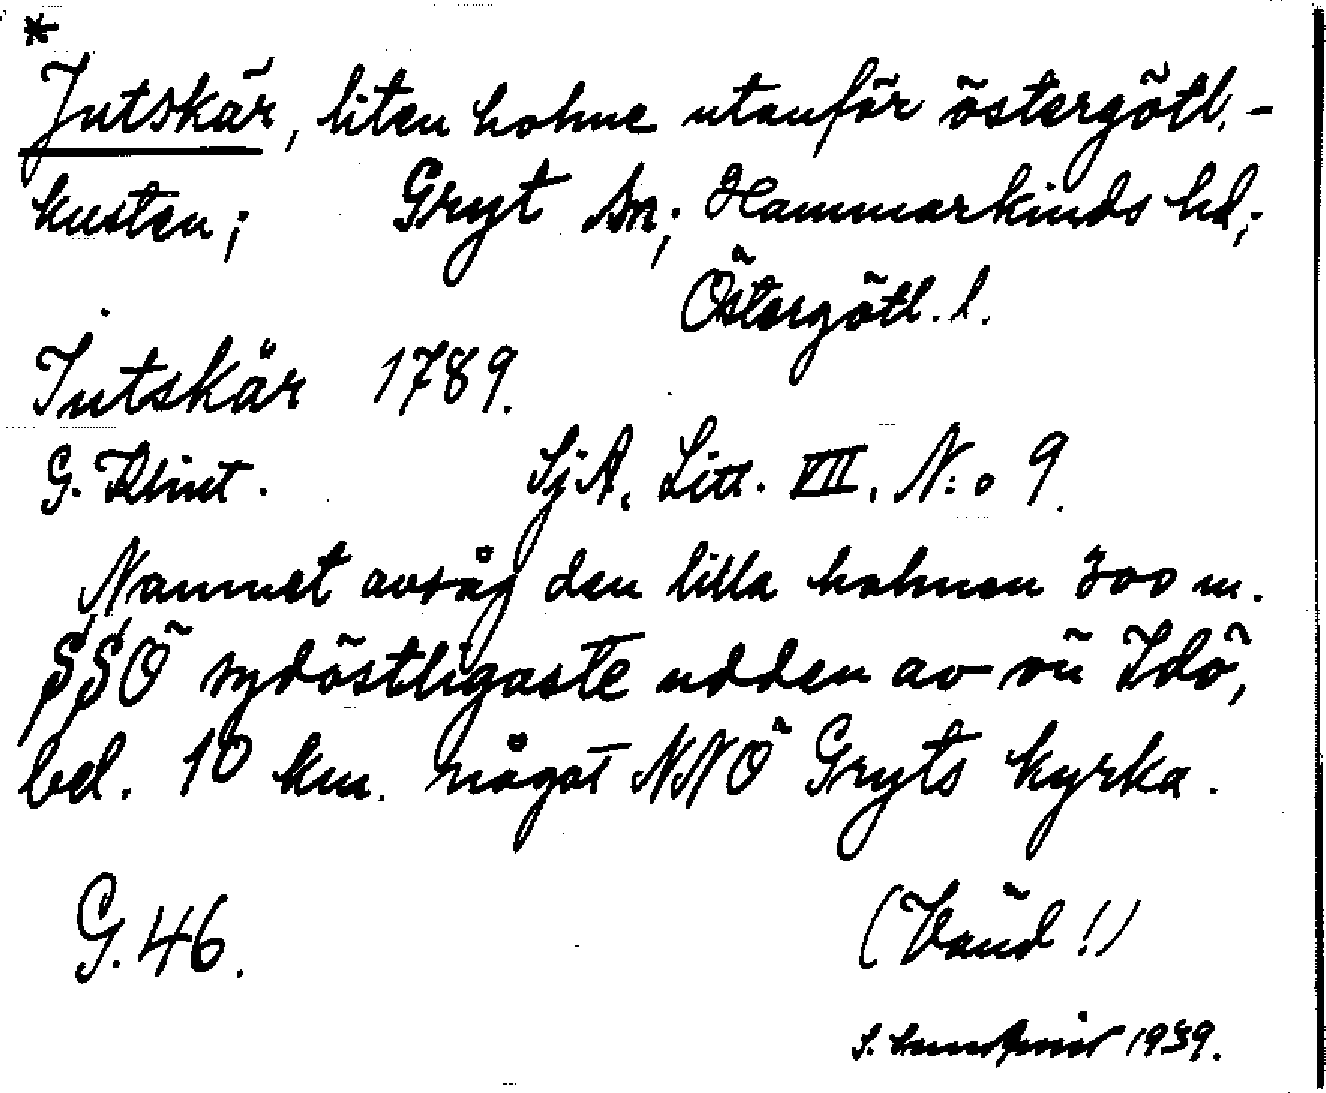 *
Jutskär, liten holme utanför östergötl.-
kusten; Gryt sn; Hammarkinds hd;
Östergötl. l.
Jutskär 1789.
G. Klint. SjA. Litt. VII. N:o 9.
Namnet avsåg den lilla holmen 300 m.
SSÖ sydöstligaste udden av nu Idö,
bel. 10 km. något NNÖ Gryts kyrka.
G. 46. (Vänd!)
S. 1939.